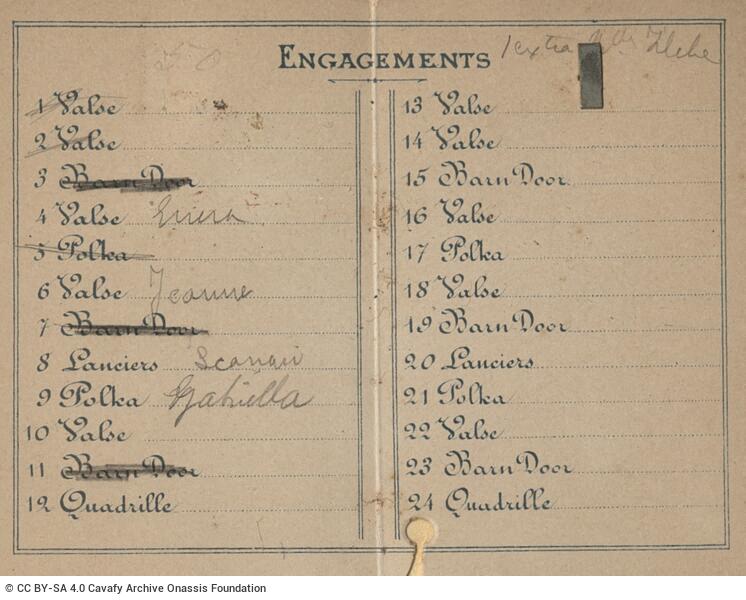 ENGAGEMENTS 1 extra
1 Valse
2 Valse
3 Barn Door
4 Valse
5 Polka
6 Valse Jeanne
7 Barn Door
8 Lanciers
9 Polka Gabriella
10 Valse
11 Barn Door
12 Quadrille
13 Valse
14 Valse
15 Barn Door
16 Valse
17 Polka
18 Valse
19 Barn Door
20 Lanciers
21 Polka
22 Valse
23 Barn Door
24 Quadrille
© CC BY-SA 4.0 Cavafy Archive Onassis Foundation